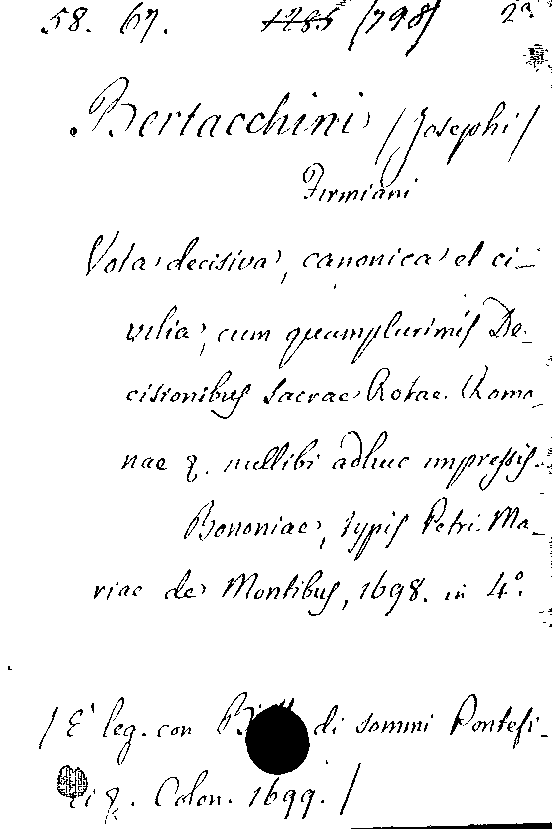 58. 67. 1285 (798) 2a.
Bertacchini /Josephi/
Firmiani
Vota decisiva, canonica et ci-
vilia, cum quamplurimis De-
cisionibus Sacrae Rotae Roma-
nae &. nullibi adhuc impressis.
Bononiae, typis Petri Ma-
riae de Montibus, 1698. in 4º.
/ E' leg. con di sommi Pontefi-
ci &. Colon. 1699. /